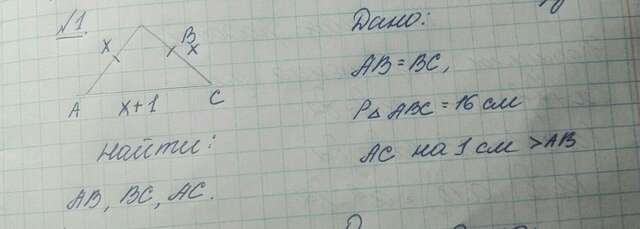 №1.
B
x
x
A
x+1
C
Найти:
AB, BC, AC.
Дано:
AB = BC,
P△ ABC = 16 см
AC на 1 см > AB